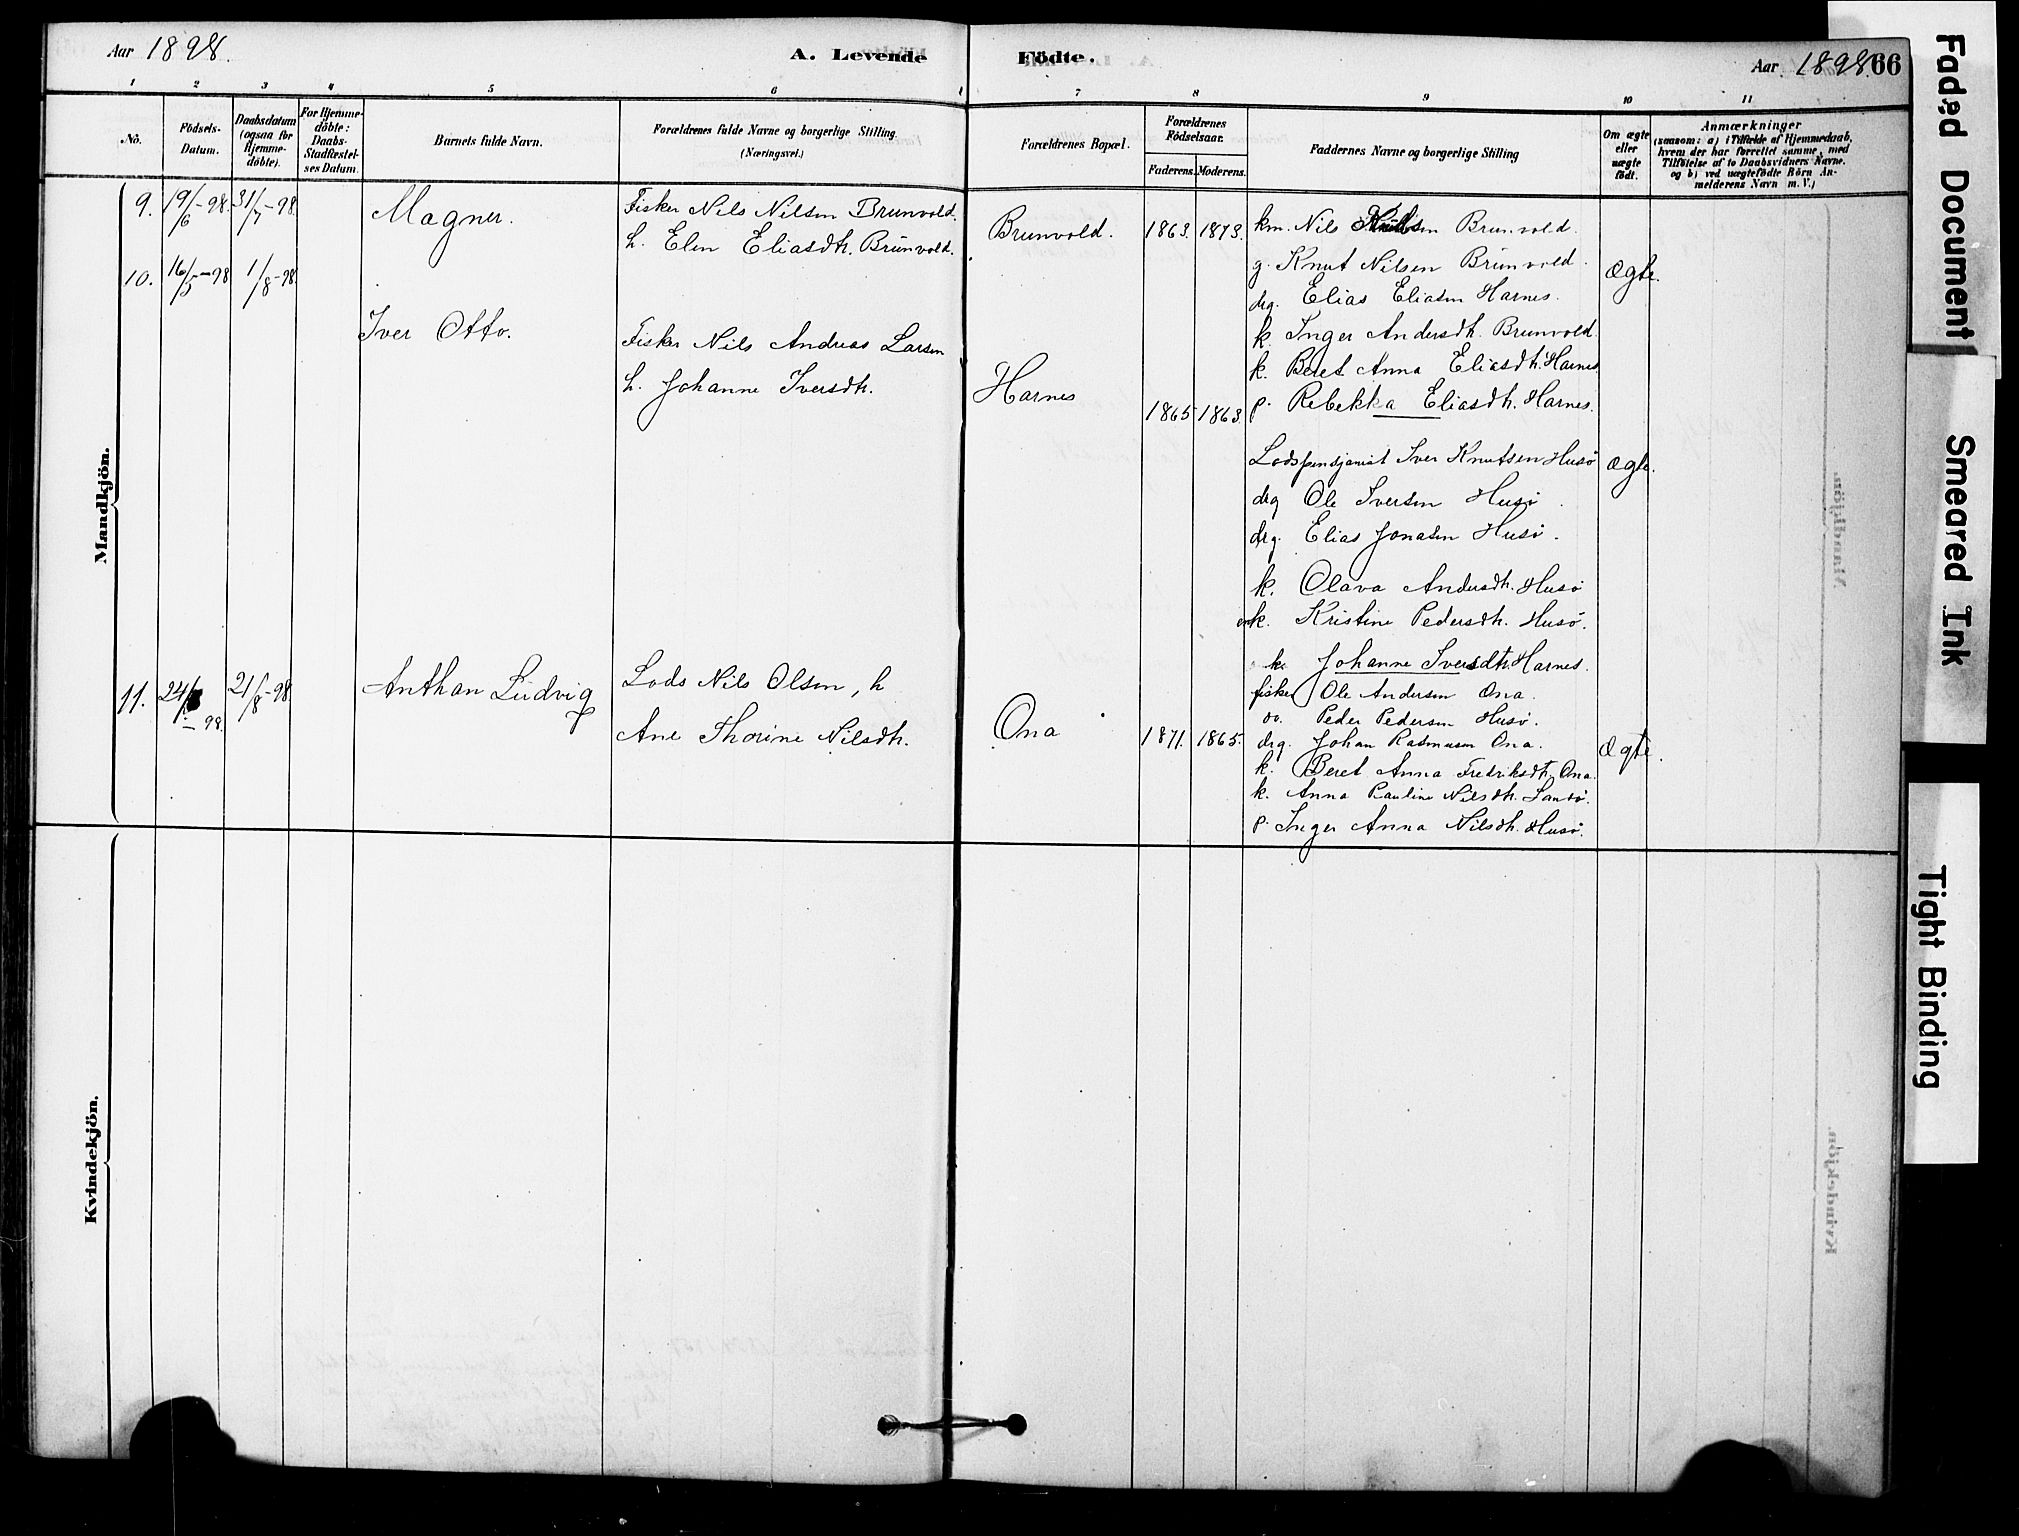 Aar 1898.
A. Levende
Födte.
Aar 1898.
66
1 2 3 4 5 6 7 8 9 10 11
No.
Födsels-Datum.
Daabsdatum (ogsaa for Hjemme-döbte).
For Hjemme-döbte: Daabs-Stadfæstel-ses Datum.
Barnets fulde Navn.
Forældrenes fulde Navne og borgerlige Stilling.
(Næringsvei.)
Forældrenes Bopæl.
Forældrenes Födselsaar.
Faderens. Moderens.
Faddernes Navne og borgerlige Stilling
Om ægte eller uægte födt.
Anmærkninger
(saasom: a) i Tilfælde af Hjemmedaab,
hvem der har forrettet samme, med
Tilföielse af to Daabsvidners Navne.
og b) ved uægtefödte Börn An-
melderens Navn m. V.)
Mandkjön.
9. 19/6-98. 31/7-98. Magner. Fisker Nils Nilsen Brunvold.
h. Elen Eliasdtr. Brunvold.
Brunvold. 1863. 1873. km. Nils Brunvold.
g. Knut Nilsen Brunvold. Ægte.
drg. Elias Eliasen Harnes.
k. Inger Andersdtr. Brunvold.
k. Beret Anna Eliasdtr. Harnes.
p. Rebekka Eliasdtr. Harnes.
10. 16/5-98 1/8-98. Iver Otto. Fisker Nils Andreas Larsen
h. Johanne Iversdtr.
Harnes 1865 1863.
Lodspensjonist Iver Knutsen Husö Ægte.
drg Ole Iversen Husö.
drg. Elias Jonasen Husö.
k. Olava Andersdtr. Husö
enk. Kristine Pedersdtr. Husö.
k. Johanne Iversdtr. Harnes.
11. 24/ -98. 21/8-98. Anthan Ludvig Lods Nils Olsen, h
Ane Thorine Nilsdtr.
Ona 1871. 1865.
fisker Ole Andersen Ona.
do. Peder Pedersen Husö.
drg. Johan Rasmusen Ona. Ægte.
k. Beret Anna Fredriksdtr. Ona.
k. Anna Pauline Nilsdtr. Sandö.
p. Inger Anna Nilsdtr. Husö.
Kvindekjön.
Faded Document
Smeared Ink
Tight Binding